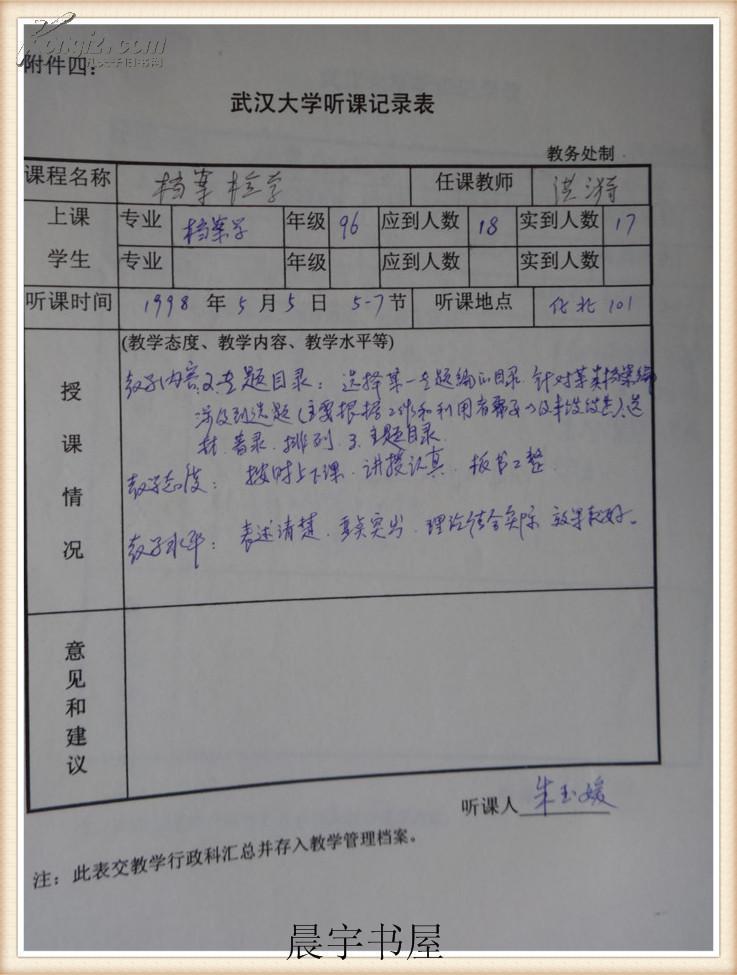 附件四：
武汉大学听课记录表
教务处制
课程名称 档案检学 任课教师 洪漪
上课学生 专业 档案学 年级 96 应到人数 18 实到人数 17
专业 年级 应到人数 实到人数
听课时间 1998 年 5 月 5 日 5-7 节 听课地点 化北 101
授课情况
(教学态度、教学内容、教学水平等)
教学内容：2.专题目录：选择某一专题编的目录.针对某类档案编
涉及到选题(主要根据工作和利用者需求以及丰).选
材.著录.排列.3.主题目录.
教学态度：按时上下课.讲授认真.板书工整.
教学水平：表述清楚.重点突出.理论结合实际.效果较好。
意见和建议
听课人 朱玉媛
注：此表交教学行政科汇总并存入教学管理档案。
晨宇书屋